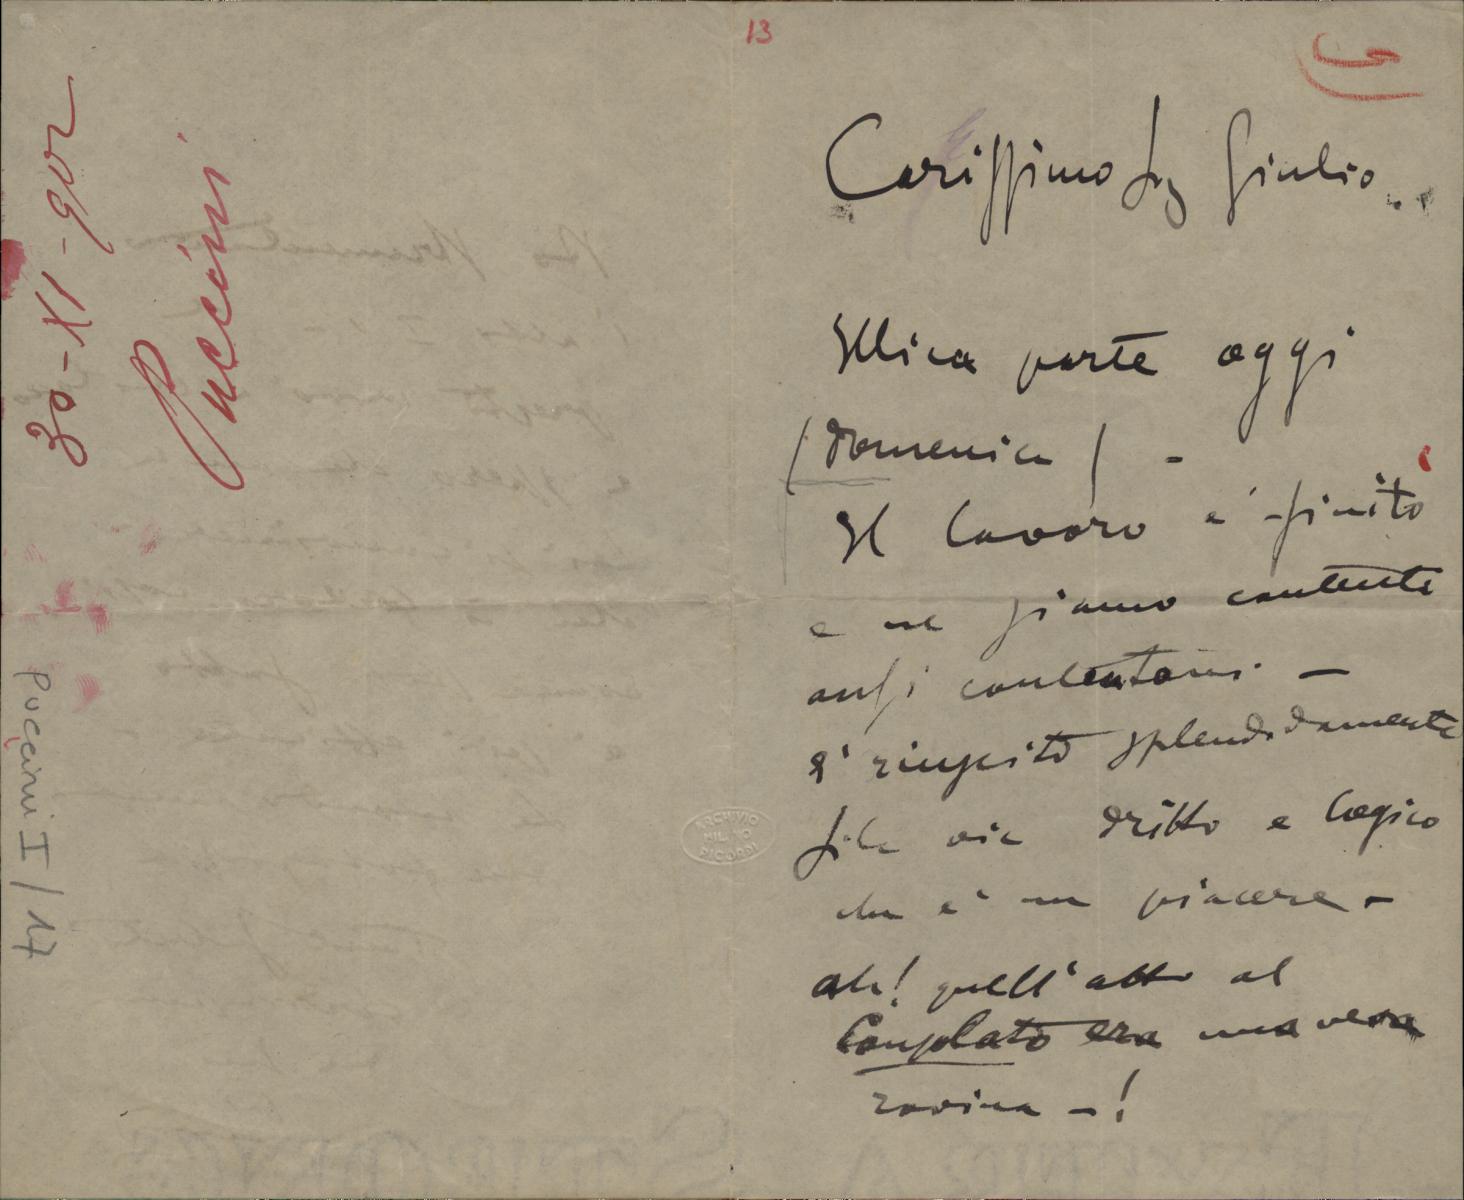 30-XI-902
Puccini
Puccini I/17
13
ARCHIVIO
MILANO
RICORDI
Carissimo Sig Giulio
Illica parte oggi
(domenica) -
Il lavoro è finito
e ne siamo contenti
anzi contentoni -
È riuscito splendidamente
fila via dritto e logico
che è un piacere -
Ah! quell'atto al
Consolato era una vera
rovina - !